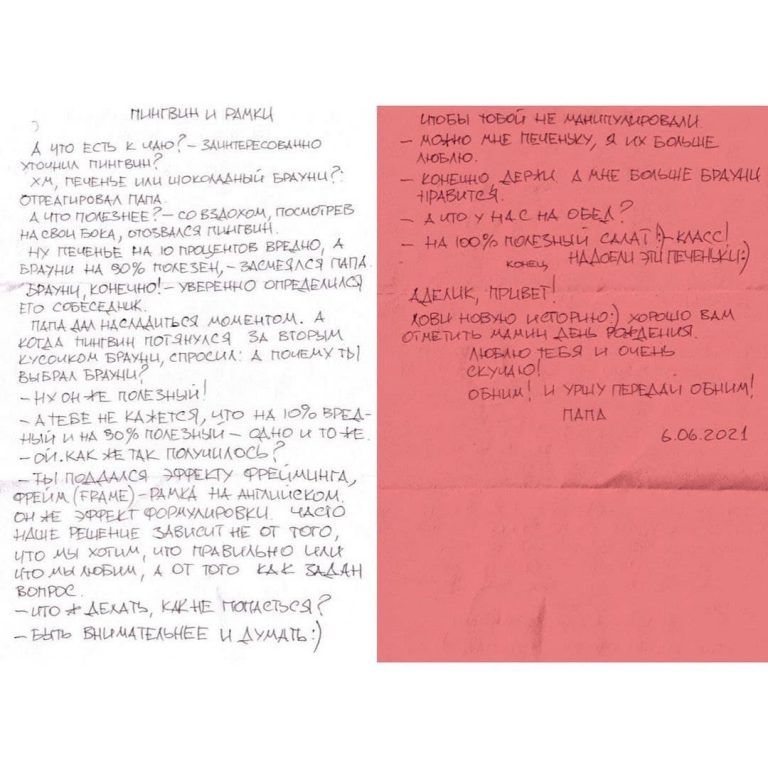 ПИНГВИН И РАМКИ
А ЧТО ЕСТЬ К ЧАЮ? – ЗАИНТЕРЕСОВАННО
УТОЧНИЛ ПИНГВИН?
ХМ, ПЕЧЕНЬЕ ИЛИ ШОКОЛАДНЫЙ БРАУНИ?:
ОТРЕАГИРОВАЛ ПАПА.
А ЧТО ПОЛЕЗНЕЕ? – СО ВЗДОХОМ, ПОСМОТРЕВ
НА СВОИ БОКА, ОТОЗВАЛСЯ ПИНГВИН.
НУ ПЕЧЕНЬЕ НА 10 ПРОЦЕНТОВ ВРЕДНО, А
БРАУНИ НА 90% ПОЛЕЗЕН, – ЗАСМЕЯЛСЯ ПАПА.
БРАУНИ, КОНЕЧНО! – УВЕРЕННО ОПРЕДЕЛИЛСЯ
ЕГО СОБЕСЕДНИК.
ПАПА ДАЛ НАСЛАДИТЬСЯ МОМЕНТОМ. А
КОГДА ПИНГВИН ПОТЯНУЛСЯ ЗА ВТОРЫМ
КУСОЧКОМ БРАУНИ, СПРОСИЛ: А ПОЧЕМУ ТЫ
ВЫБРАЛ БРАУНИ?
– НУ ОН ЖЕ ПОЛЕЗНЫЙ!
– А ТЕБЕ НЕ КАЖЕТСЯ, ЧТО НА 10% ВРЕД-
НЫЙ И НА 90% ПОЛЕЗНЫЙ – ОДНО И ТО ЖЕ.
– ОЙ. КАК ЖЕ ТАК ПОЛУЧИЛОСЬ?
– ТЫ ПОДДАЛСЯ ЭФФЕКТУ ФРЕЙМИНГА,
ФРЕЙМ (FRAME) – РАМКА НА АНГЛИЙСКОМ.
ОН ЖЕ ЭФФЕКТ ФОРМУЛИРОВКИ. ЧАСТО
НАШЕ РЕШЕНИЕ ЗАВИСИТ НЕ ОТ ТОГО,
ЧТО МЫ ХОТИМ, ЧТО ПРАВИЛЬНО ИЛИ
ЧТО МЫ ЛЮБИМ, А ОТ ТОГО КАК ЗАДАН
ВОПРОС.
– ЧТО Ж ДЕЛАТЬ, КАК НЕ ПОПАСТЬСЯ?
– БЫТЬ ВНИМАТЕЛЬНЕЕ И ДУМАТЬ :)
ЧТОБЫ ТОБОЙ НЕ МАНИПУЛИРОВАЛИ.
– МОЖНО МНЕ ПЕЧЕНЬКУ, Я ИХ БОЛЬШЕ
ЛЮБЛЮ.
– КОНЕЧНО, ДЕРЖИ. А МНЕ БОЛЬШЕ БРАУНИ
НРАВИТСЯ.
– А ЧТО У НАС НА ОБЕД?
– НА 100% ПОЛЕЗНЫЙ САЛАТ :) – КЛАСС!
КОНЕЦ НАДОЕЛИ ЭТИ ПЕЧЕНЬКИ :)
АДЕЛИК, ПРИВЕТ!
ЛОВИ НОВУЮ ИСТОРИЮ :) ХОРОШО ВАМ
ОТМЕТИТЬ МАМИН ДЕНЬ РОЖДЕНИЯ.
ЛЮБЛЮ ТЕБЯ И ОЧЕНЬ
СКУЧАЮ!
ОБНИМ! И УРШУ ПЕРЕДАЙ ОБНИМ!
ПАПА
6.06.2021